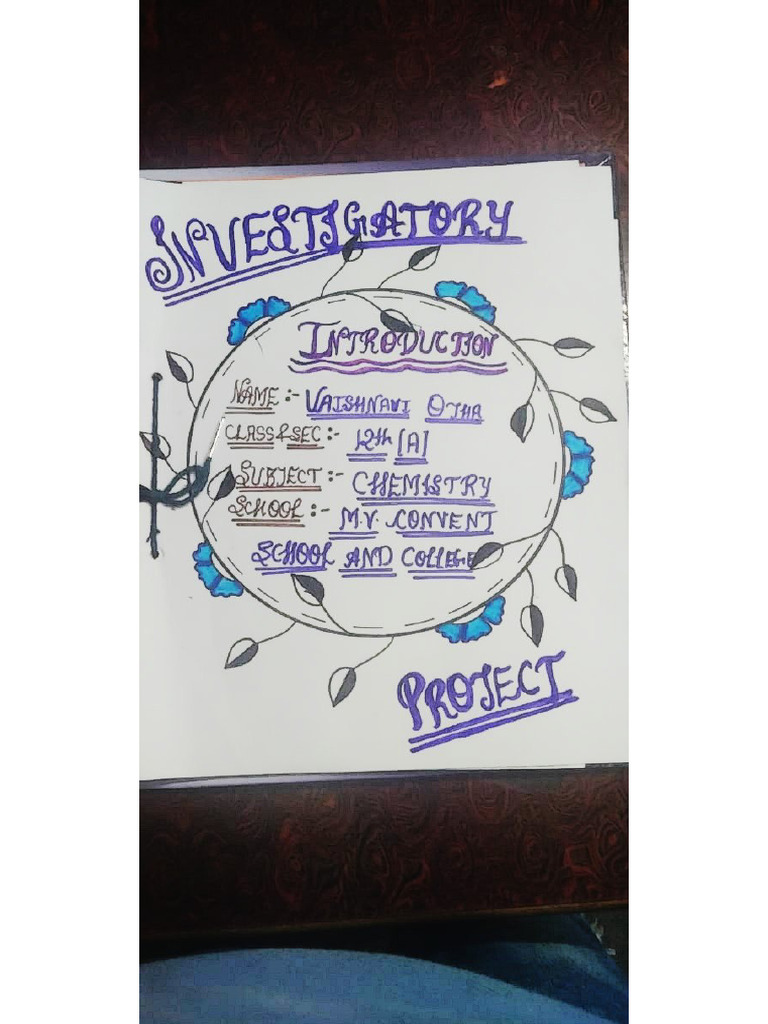 INVESTIGATORY
INTRODUCTION
NAME :- VAISHNAVI OJHA
CLASS & SEC :- 12th [A]
SUBJECT :- CHEMISTRY
SCHOOL :- M.V. CONVENT
SCHOOL AND COLLEGE
PROJECT